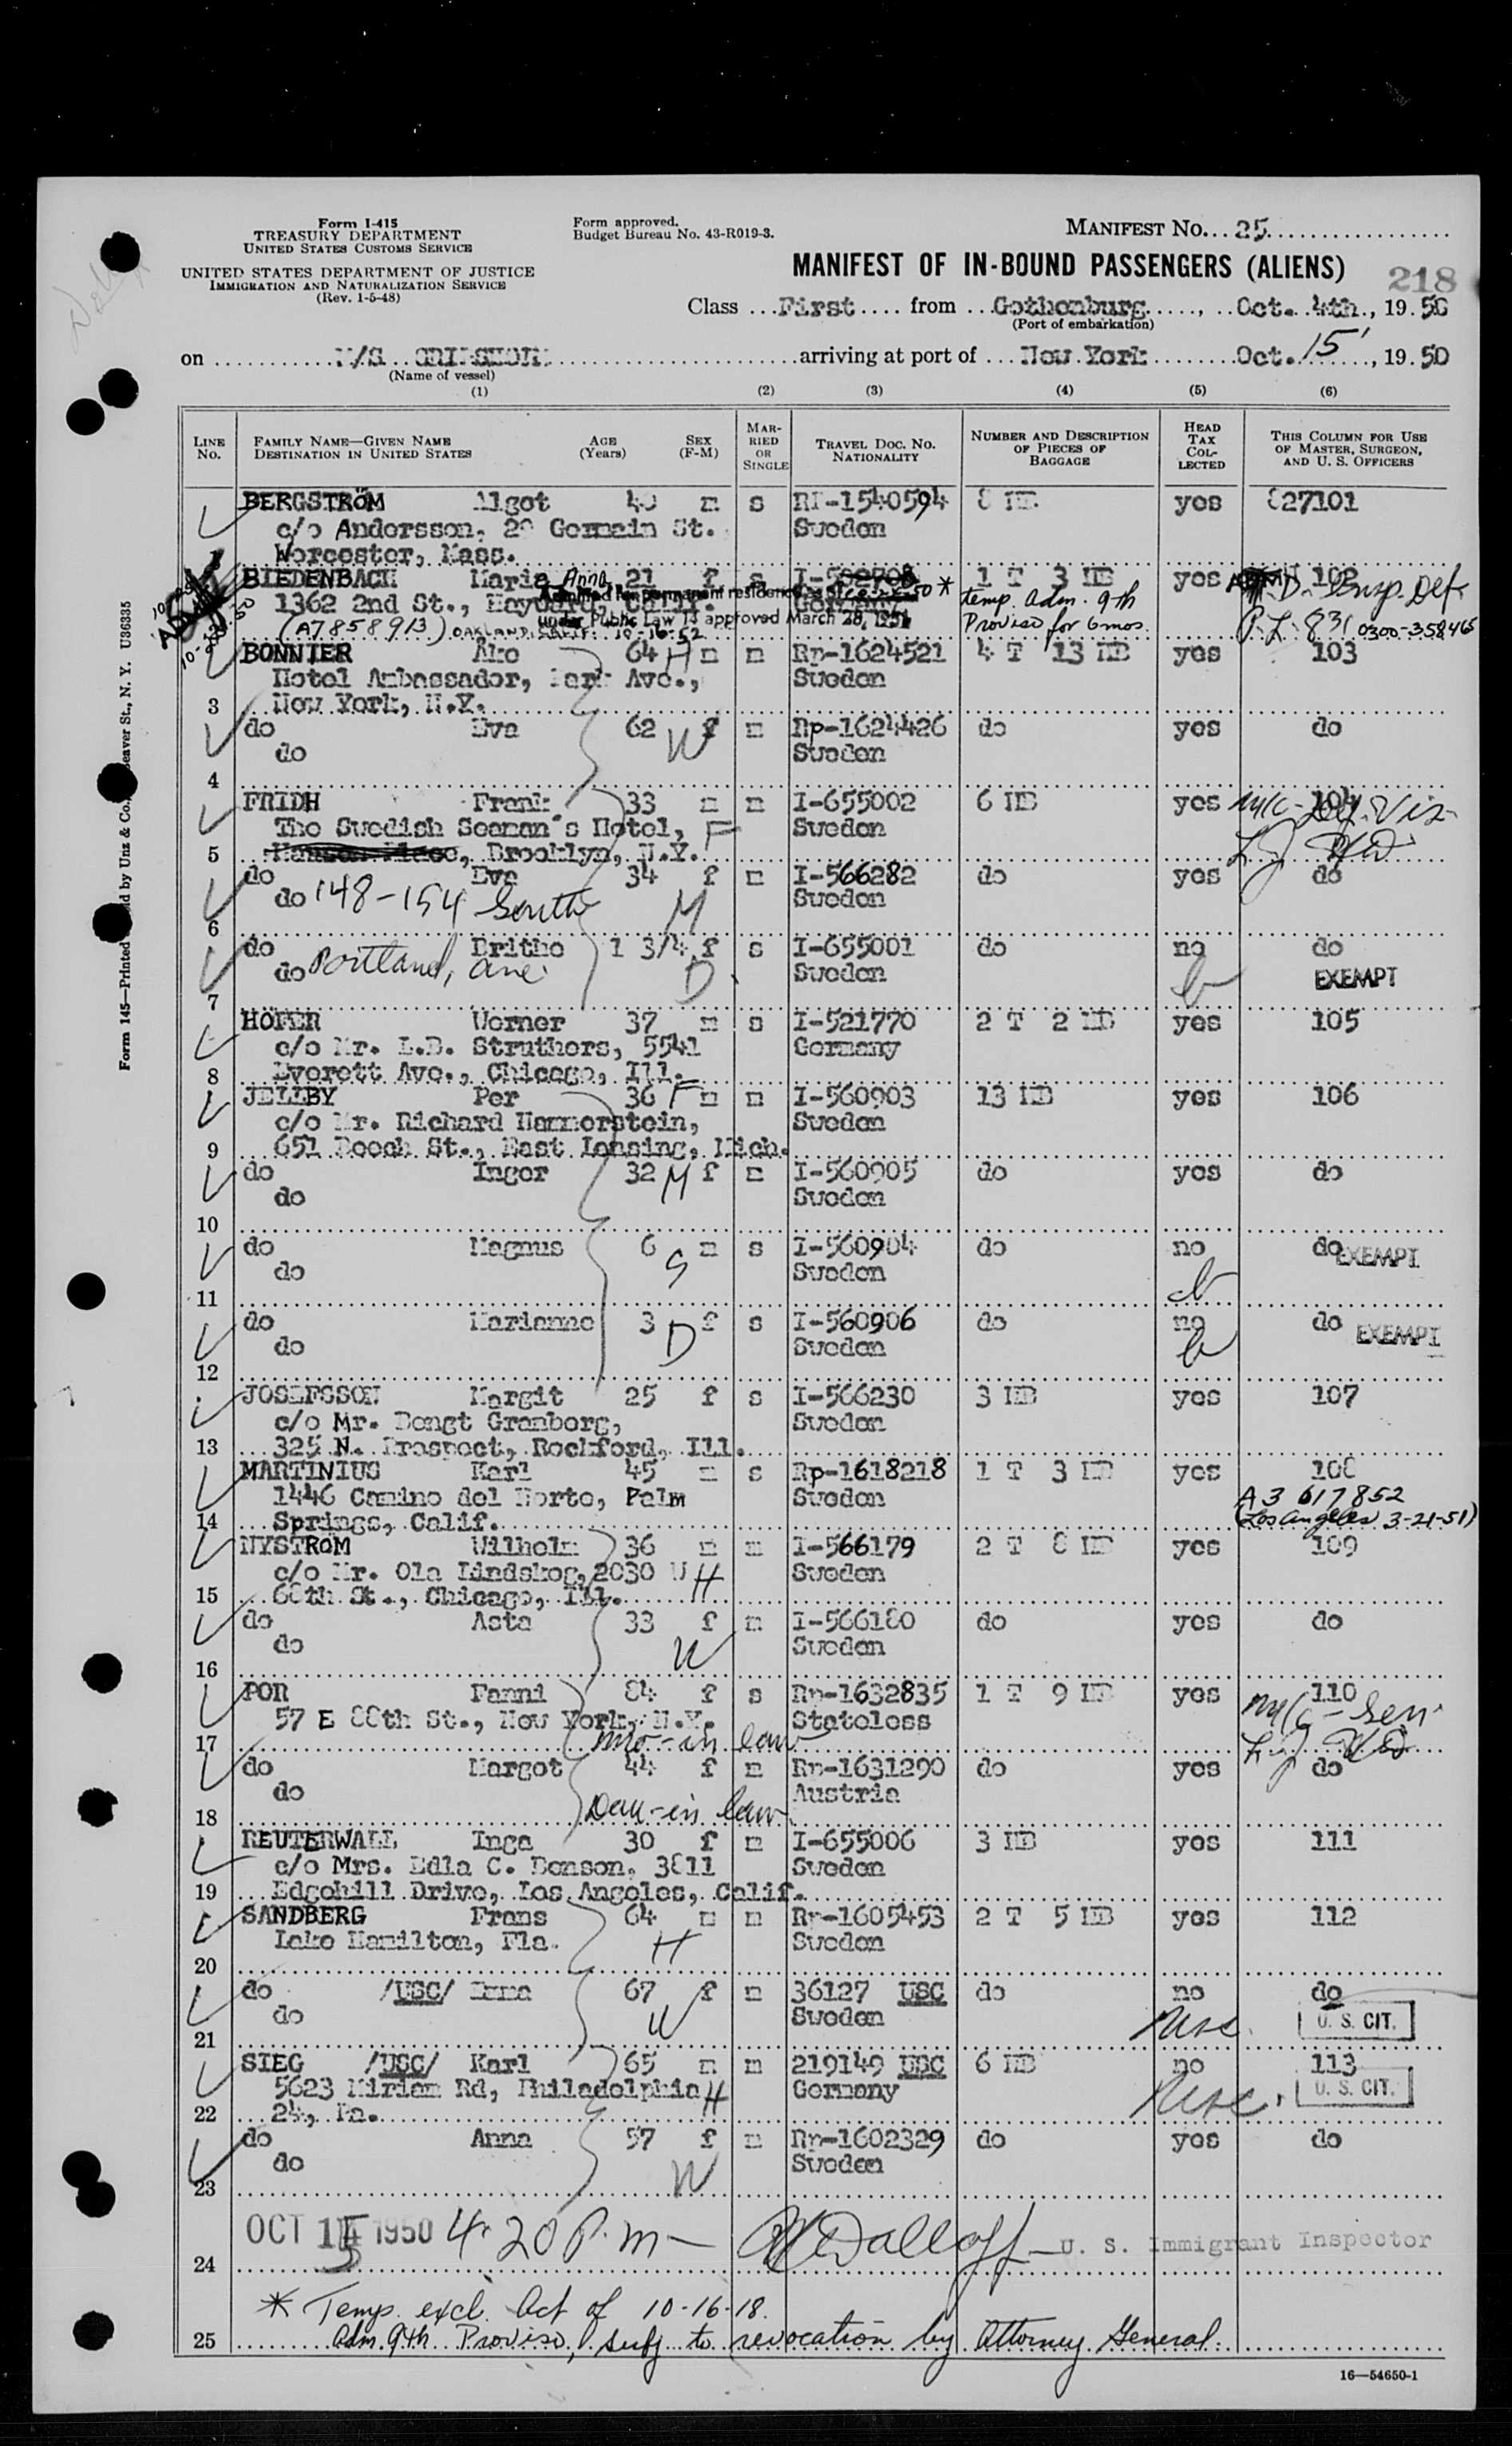 Form I-415
TREASURY DEPARTMENT
UNITED STATES CUSTOMS SERVICE
UNITED STATES DEPARTMENT OF JUSTICE
IMMIGRATION AND NATURALIZATION SERVICE
(Rev. 1-5-48)
Form approved.
Budget Bureau No. 43-R019-3.
MANIFEST NO. 25
MANIFEST OF IN-BOUND PASSENGERS (ALIENS)
218
Class First from Gothenburg, Oct. 4th, 1950
(Port of embarkation)
on M/S GRIPSHOLM arriving at port of New York Oct. 15, 1950
(Name of vessel)
(1) (2) (3) (4) (5) (6)
LINE NO. FAMILY NAME—GIVEN NAME DESTINATION IN UNITED STATES AGE (Years) SEX (F-M) MARRIED OR SINGLE TRAVEL DOC. NO. NATIONALITY NUMBER AND DESCRIPTION OF PIECES OF BAGGAGE HEAD TAX COLLECTED THIS COLUMN FOR USE OF MASTER, SURGEON, AND U. S. OFFICERS
BERGSTRÖM Algot 40 m s RP-1540594 8 HB yes 827101
c/o Andersson, 28 Germain St. Sweden
Worcester, Mass.
BIEDENBACH Maria Anna 21 f s 1 T 3 HB yes 102
1362 2nd St., Hayward, Calif. Germany temp. Adm. 9th
Admitted for permanent residence
under Public Law 14 approved March 28, 1951
(A7858913) OAKLAND, CALIF. 10-16-52 Proviso for 6 mos. P.L. 831 0300-358465
BONNIER Ake 64 H m m Rp-1624521 4 T 13 HB yes 103
Hotel Ambassador, Park Ave., Sweden
3 New York, N.Y.
do Eva 62 f m Rp-1624426 do yes do
do W Sweden
4
FRIDH Frank 33 m m I-655002 6 HB yes 104
The Swedish Seaman's Hotel, F Sweden
5 Hanson Place, Brooklyn, N.Y.
do Eva 34 f m I-566282 do yes do
do 148-154 South M Sweden
6
do Brithe 1 3/4 f s I-655001 do no do
do Portland, Ave. D Sweden EXEMPT
7
HÖFER Werner 37 m s I-521770 2 T 2 HB yes 105
c/o Mr. L.B. Struthers, 5541 Germany
8 Everett Ave., Chicago, Ill.
JELLBY Per 36 F m m I-560903 13 HB yes 106
c/o Mr. Richard Hammerstein, Sweden
9 651 Beech St., East Lansing, Mich.
do Inger 32 M f m I-560905 do yes do
do Sweden
10
do Magnus 6 m s I-560904 do no do EXEMPT
do S Sweden
11
do Marianne 3 f s I-560906 do no do EXEMPT
do D Sweden
12
JOSEFSSON Margit 25 f s I-566230 3 HB yes 107
c/o Mr. Bengt Granborg, Sweden
13 325 N. Prospect, Rockford, Ill.
MARTINIUS Karl 45 m s Rp-1618218 1 T 3 HB yes 108
1446 Camino del Norte, Palm Sweden A3 617852
14 Springs, Calif. (Los Angeles 3-21-51)
NYSTRÖM Wilhelm 36 m m I-566179 2 T 8 HB yes 109
c/o Mr. Ola Lindskog, 2030 W H Sweden
15 68th St., Chicago, Ill.
do Asta 33 f m I-566180 do yes do
do W Sweden
16
POR Fanni 84 f s Rp-1632835 1 T 9 HB yes 110
57 E 88th St., New York, N.Y. Stateless
17 Mo-in law
do Margot 44 f m Rp-1631290 do yes do
do Austria
18 Dau-in law
REUTERWALL Inga 30 f m I-655006 3 HB yes 111
c/o Mrs. Edla C. Benson, 3811 Sweden
19 Edgehill Drive, Los Angeles, Calif.
SANDBERG Frans 64 m m Rp-1605453 2 T 5 HB yes 112
Lake Hamilton, Fla. H Sweden
20
do /USC/ Emma 67 f m 36127 USC do no do
do W Sweden U. S. CIT.
21
SIEG /USC/ Karl 65 m m 219149 USC 6 HB no 113
5623 Miriam Rd, Philadelphia H Germany U. S. CIT.
22 24, Pa.
do Anna 57 f m Rp-1602329 do yes do
do W Sweden
23
OCT 15 1950 4:20 P.m— U. S. Immigrant Inspector
24
* Temp. excl. Act of 10-16-18.
25 Adm. 9th Proviso, subj to revocation by Attorney General.
16—54650-1
Form 145—Printed and by Unz & Co., Beaver St., N. Y. U36335